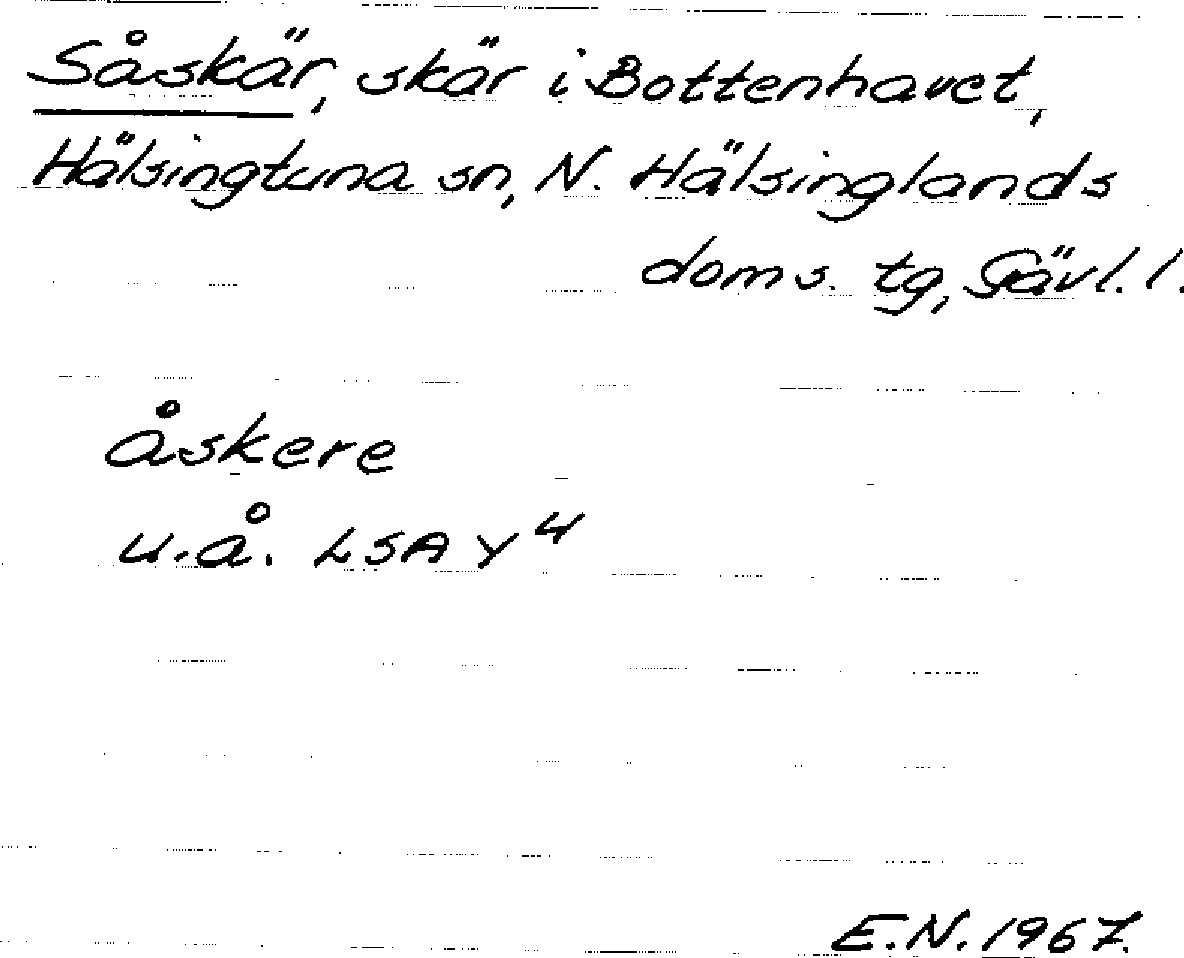 Såskär, skär i Bottenhavet,
Hälsingtuna sn, N. Hälsinglands
doms. tg, Gävl. l.
åskere
u.å. LSA Y 4
E.N. 1967.